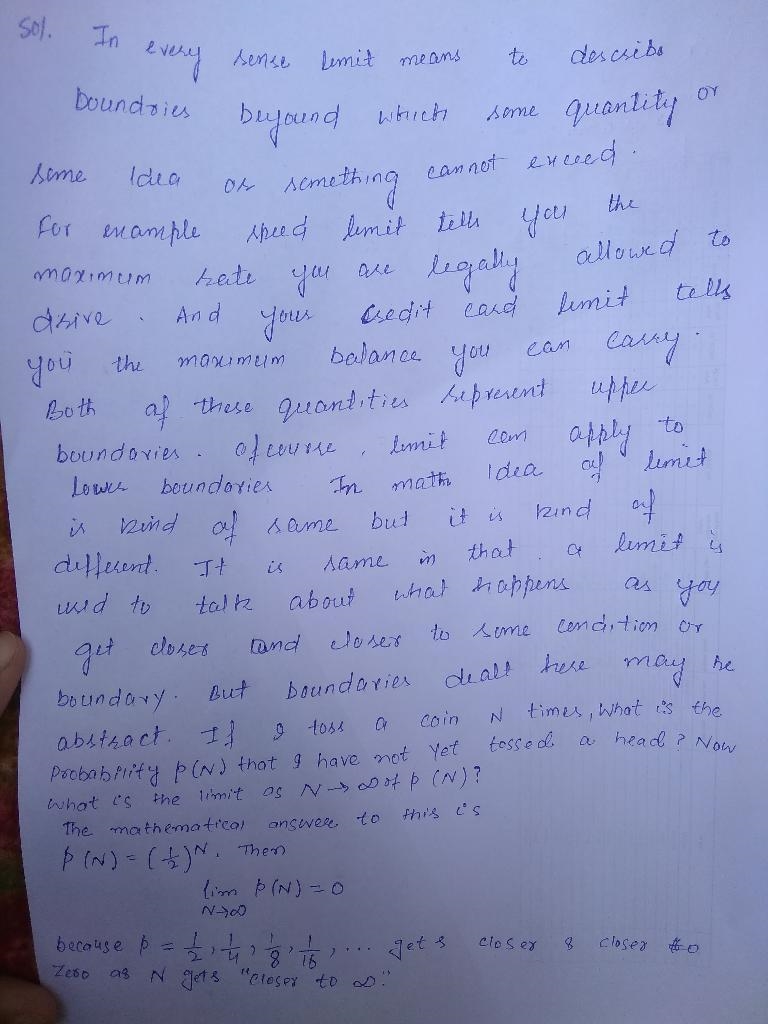 Sol. In every sense limit means to describe
boundries beyound which some quantity or
some Idea or something cannot exceed.
For example speed limit tells you the
maximum rate you are legally allowed to
drive. And your credit card limit tells
you the maximum balance you can carry.
Both of these quantities represent upper
boundaries. of course, limit can apply to
Lower boundories In math Idea of limit
is kind of same but it is kind of
different. It is same in that a limit is
used to talk about what happens as you
get closer and closer to some condition or
boundary. But boundaries dealt here may be
abstract. If I toss a coin N times, what is the
Probability p(N) that I have not yet tossed a head? Now
what is the limit as N→∞ of p(N)?
The mathematical answer to this is
p(N) = (1/2)^N. Then
lim p(N) = 0
N→∞
because p = 1/2, 1/4, 1/8, 1/16, ... gets closer & closer to
Zero as N gets "closer to ∞."